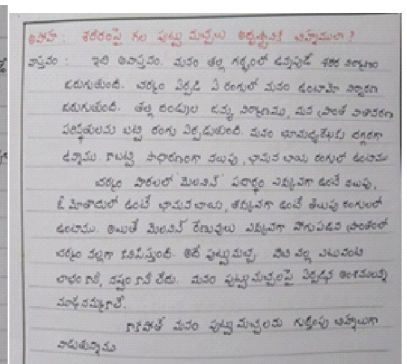 అపోహ : శరీరంపై గల పుట్టుమచ్చలు అదృష్టానికి చిహ్నములా ?
వాస్తవం : ఇది అవాస్తవం. మనం తల్లి గర్భంలో ఉన్నపుడే శరీర నిర్మాణం
జరుగుతుంది. చర్మం ఏర్పడి ఏ రంగులో మనం ఉంటామో నిర్ధారణ
జరుగుతుంది. తల్లి దండ్రుల జన్యు నిర్మాణము, మన ప్రాంత వాతావరణ
పరిస్థితులను బట్టి రంగు ఏర్పడుతుంది. మనం భూమధ్యరేఖకు దగ్గరగా
ఉన్నాము. కాబట్టి సాధారణంగా నలుపు, చామన చాయ రంగులో ఉంటాము
చర్మం పొరలలో మెలనిన్ పదార్థం ఎక్కువగా ఉంటే నలుపు,
ఓ మోతాదులో ఉంటే చామన చాయ, తక్కువగా ఉంటే తెలుపు రంగులలో
ఉంటాము. అయితే మెలనిన్ రేణువులు ఎక్కువగా పోగుపడిన ప్రాంతంలో
చర్మం నల్లగా కనిపిస్తుంది. అదే పుట్టుమచ్చ. వీటి వల్ల ఎటువంటి
లాభం కానీ, నష్టం కానీ లేదు. మనం పుట్టుమచ్చలపై ఏర్పడిన అంశములన్నీ
మూఢనమ్మకాలే.
కాకపోతే మనం పుట్టుమచ్చలను గుర్తింపు చిహ్నాలుగా
వాడుతున్నాము